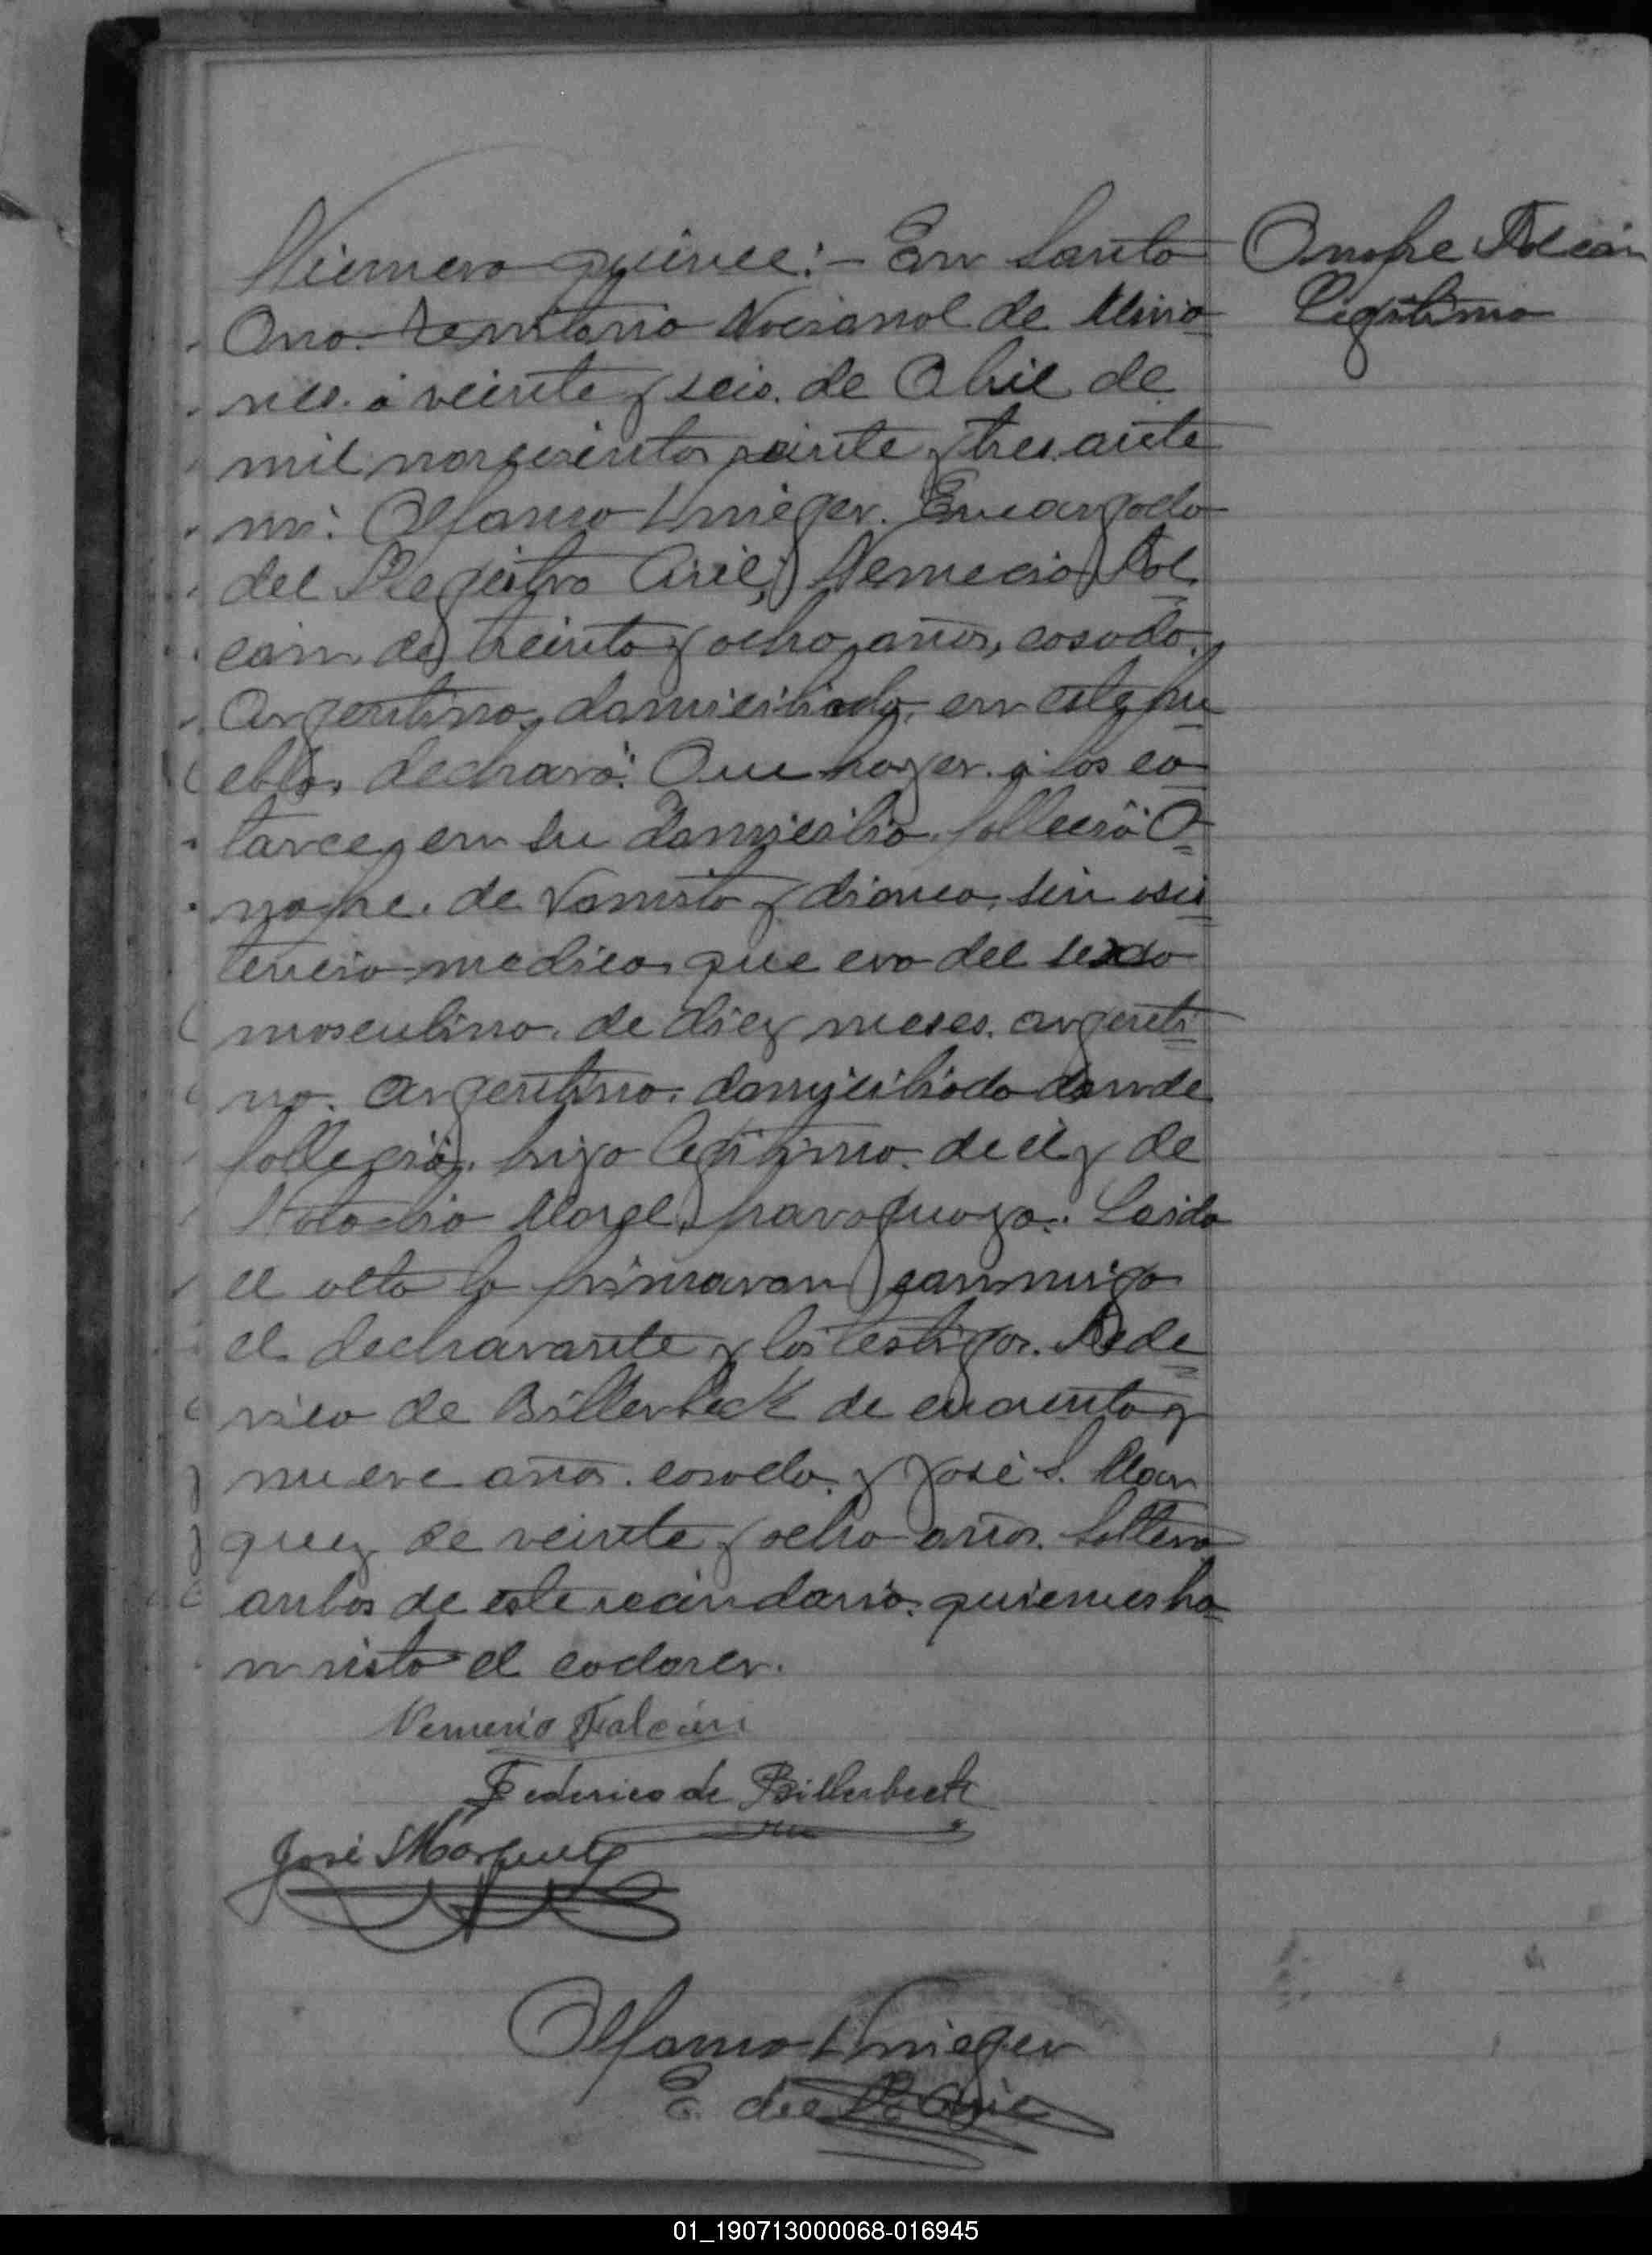 Número quince:- En Santa
Ana. Territorio Nacional de Misio=
nes. á veinte y seis. de Abril de
mil novecientos veinte y tres. ante
mi: Alfonso Krieger. Encargado
del Registro Civil, Nemecio Fal=
cón, de treinta y ocho años, casado.
Argentino, domiciliado, en este pu=
eblo, declaró: Que hayer. á las ca=
torce, en su domicilio. fallesió O=
nofre. de Vomito y diarrea, sin asis=
tencia medica, que era del sexso
masculino. de diez meses. argenti=
no. argentino. domiciliado donde
fallesió, hijo legítimo. de él y de
Maygel, paraguaya. Leida
el acta la firmaran conmigo
el declarante y los testigos. Fede=
rico de Billerbeck de cuarenta y
nueve años. casado. y José S. Mar
quez de veinte y ocho años. Soltero
anbos de este vecindario. quienes ha=
n visto el cadaver.
Nemesio Falcón
Federico de Billerbeck
José Marquez
Alfonso Krieger
E. del R. Civil
Onofre Falcón
Legítimo
01_190713000068-016945